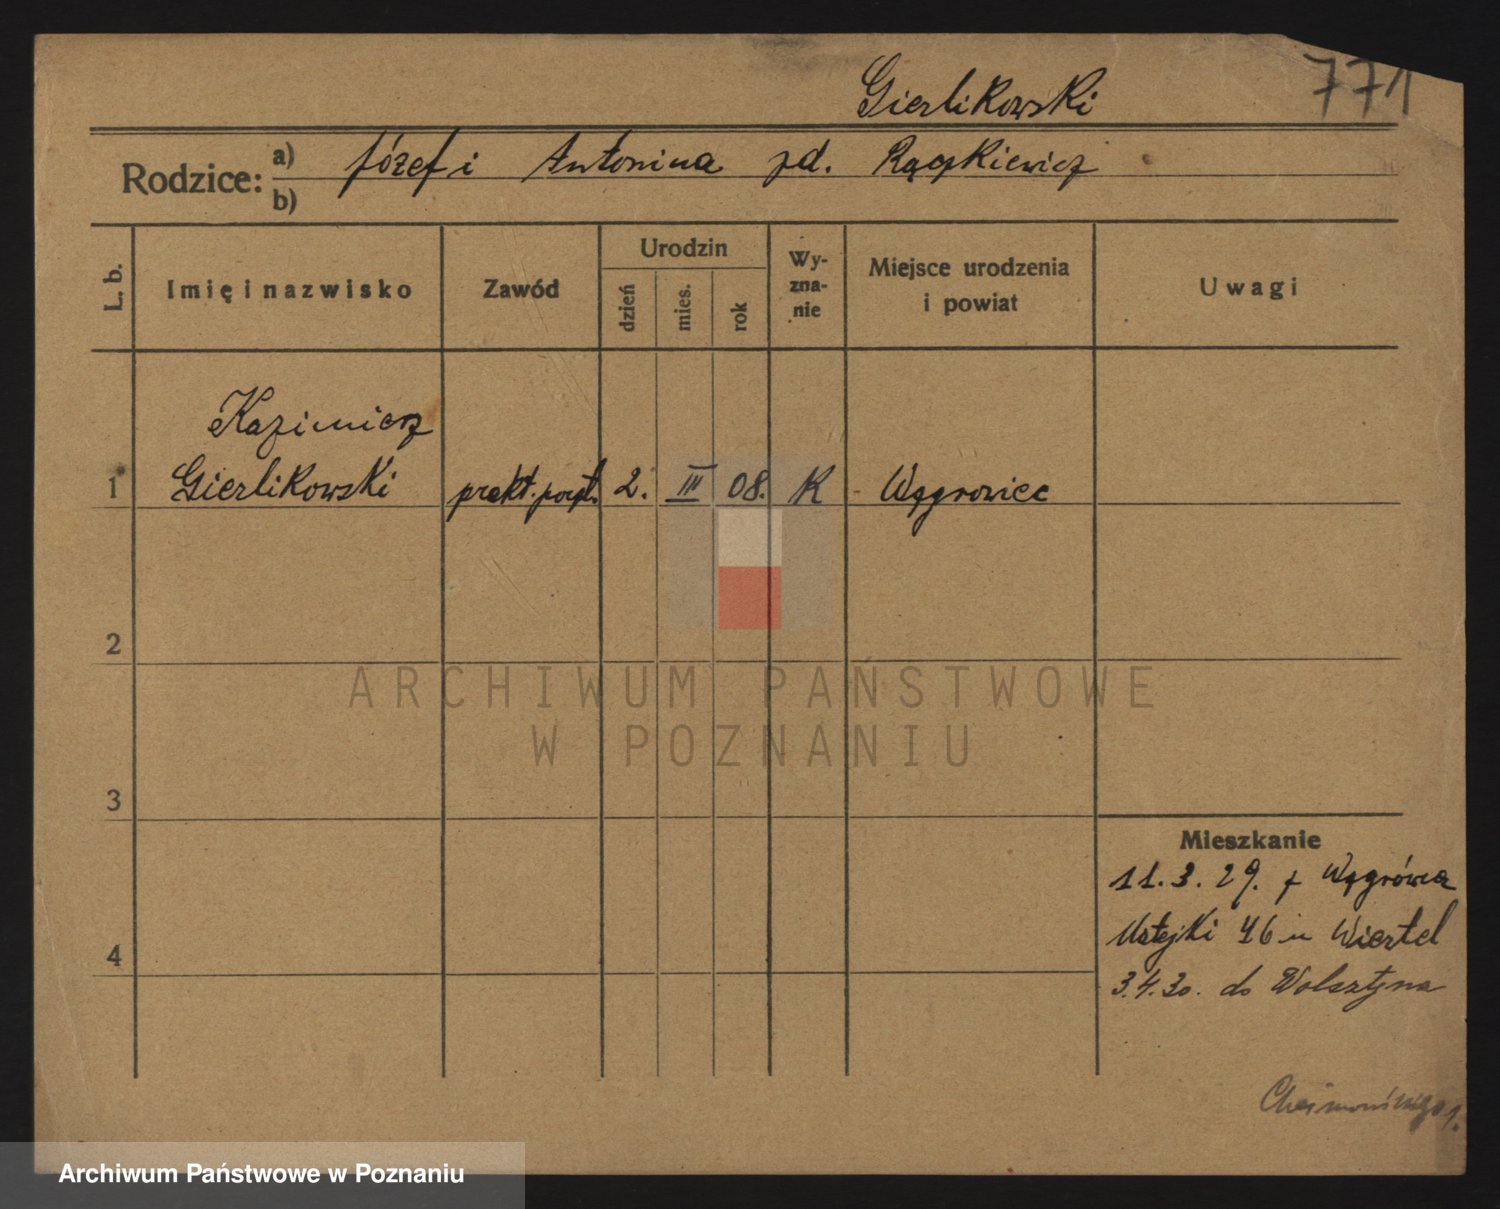 Gierlikowski
771
Rodzice:
a) Józef i Antonina zd. Rączkiewicz
b)
L. b.
Imię i nazwisko
Zawód
Urodzin
dzień
mies.
rok
Wy-
zna-
nie
Miejsce urodzenia
i powiat
Uwagi
Kazimierz
1 Gierlikowski prakt. poczt. 2. III 08. K Wągrowiec
2
3
4
Mieszkanie
11. 3. 29. z Wągrówca
Matejki 46 u Wiertel
3.4.30. do Wolsztyna
ARCHIWUM PAŃSTWOWE
W POZNANIU
Archiwum Państwowe w Poznaniu